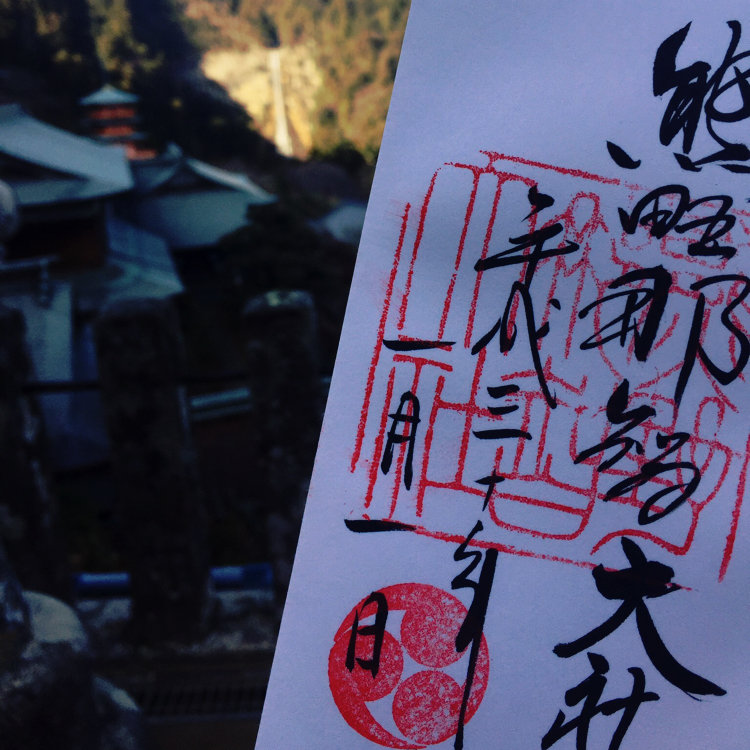 熊野那智大社
平成三十年
一月一日